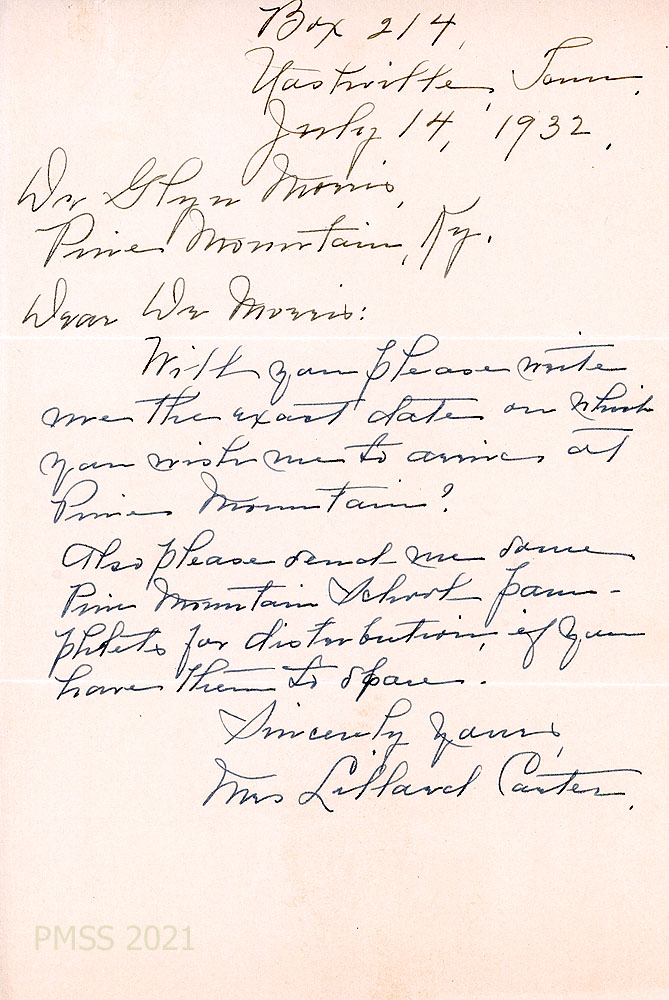 Box 214,
Nashville, Tenn.
July 14, 1932.
Dr Glyn Morris,
Pine Mountain, Ky.
Dear Dr Morris:
Will you please write
me the exact date on which
you wish me to arrive at
Pine Mountain?
Also please send me some
Pine Mountain School pam-
phlets for distribution, if you
have them to spare.
Sincerely yours,
Mrs Lillard Carter.
PMSS 2021